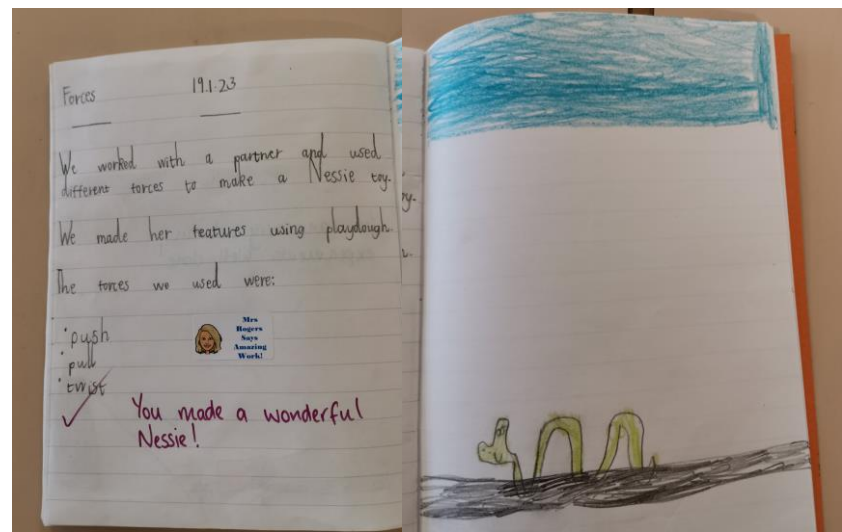 Forces 19.1.23
We worked with a partner and used
different forces to make a Nessie toy.
We made her features using playdough.
The forces we used were:
• push
• pull
• twist
Mrs
Rogers
Says
Amazing
Work!
You made a wonderful
Nessie!